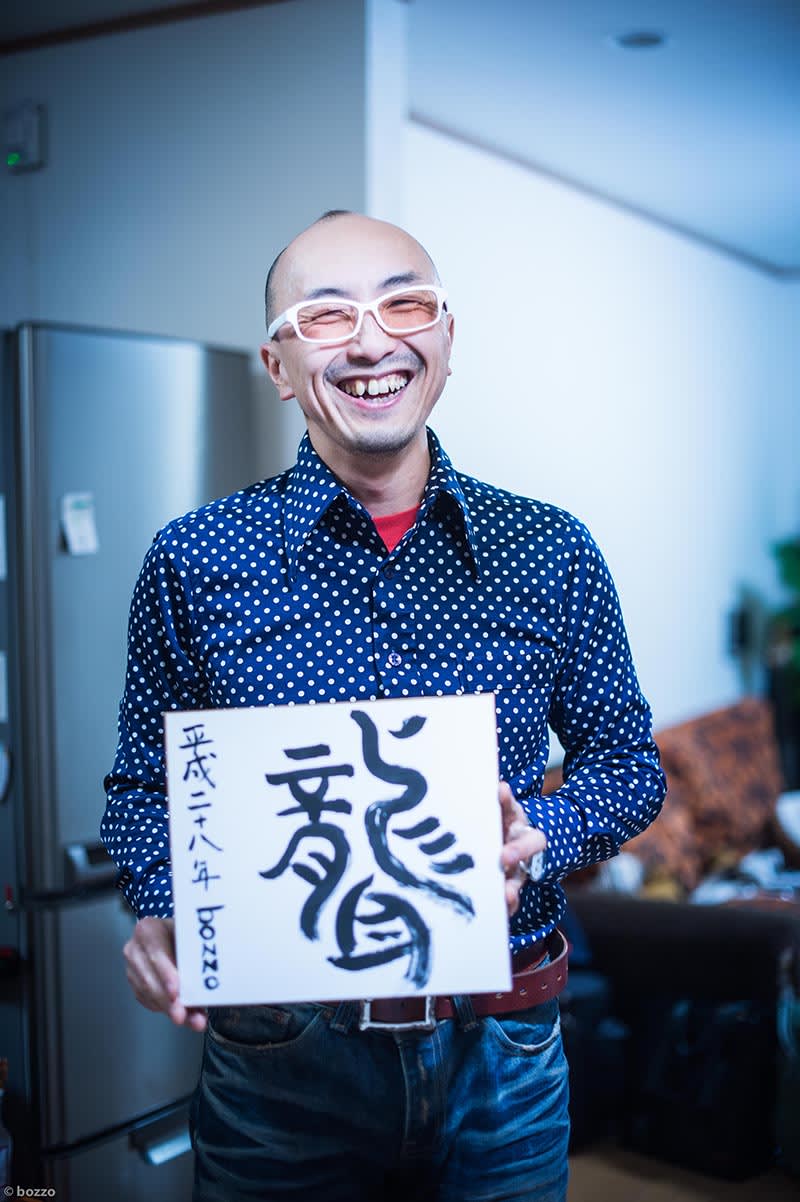 龍
平成二十八年 bozzo
© bozzo